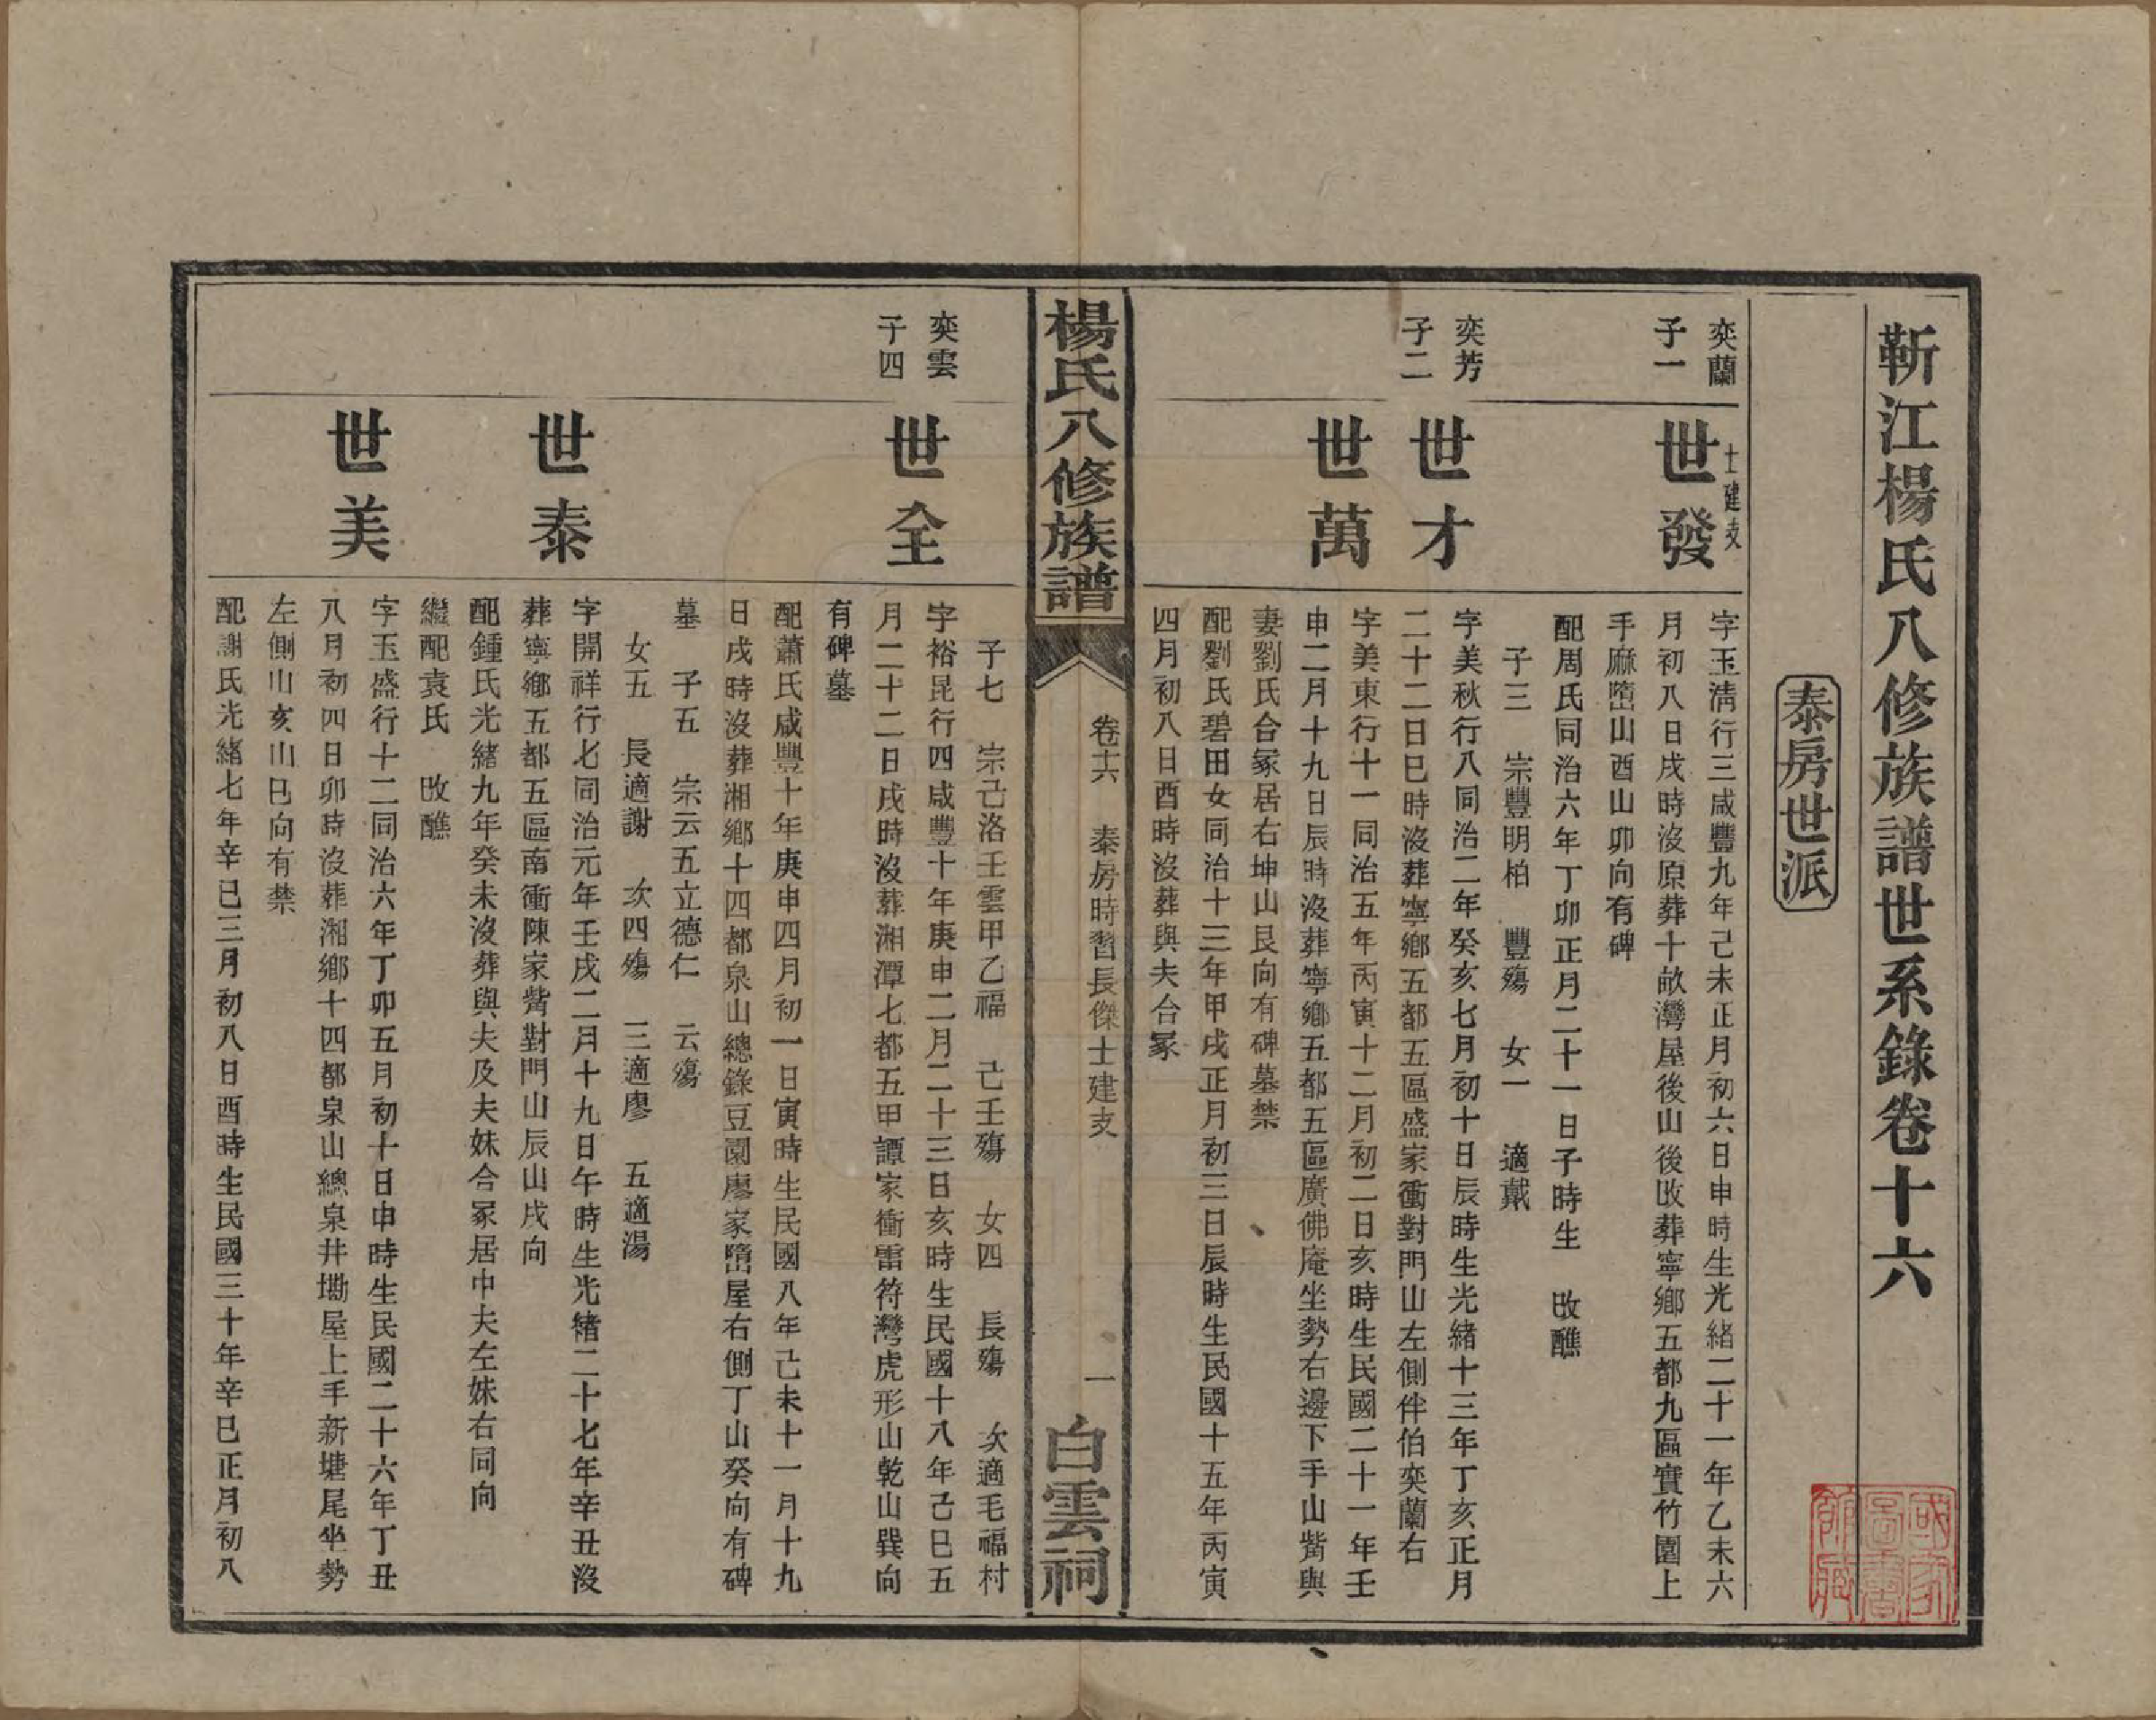 靳江楊氏八修族譜世系錄卷十六
泰房世派
奕蘭
子一
士建支
世發
字玉清行三咸豐九年己未正月初六日申時生光緒二十一年乙未六
月初八日戌時沒原葬十畝灣屋後山後改葬寧鄉五都九區實竹園上
手麻塅山酉山卯向有碑
配周氏同治六年丁卯正月二十一日子時生　改醮
子三　宗豐明柏　豐殤　女一　適戴
奕芳
子二
世才
字美秋行八同治二年癸亥七月初十日辰時生光緒十三年丁亥正月
二十二日巳時沒葬寧鄉五都五區盛家衝對門山左側伴伯奕蘭右
世萬
字美東行十一同治五年丙寅十二月初二日亥時生民國二十一年壬
申二月十九日辰時沒葬寧鄉五都五區廣佛庵坐勢右邊下手山觜與
妻劉氏合冢居右坤山艮向有碑墓禁
配劉氏碧田女同治十三年甲戌正月初三日辰時生民國十五年丙寅
四月初八日酉時沒葬與夫合冢
楊氏八修族譜
卷十六　泰房時習長傑士建支
一
白雲祠
子七　宗己洛壬雲甲乙福　己壬殤　女四　長殤　次適毛福村
奕雲
子四
世全
字裕昆行四咸豐十年庚申二月二十三日亥時生民國十八年己巳五
月二十二日戌時沒葬湘潭七都五甲譚家衝雷符灣虎形山乾山巽向
有碑墓
配蕭氏咸豐十年庚申四月初一日寅時生民國八年己未十一月十九
日戌時沒葬湘鄉十四都泉山總錄豆園廖家塅屋右側丁山癸向有碑
墓　子五　宗云五立德仁　云殤
女五　長適謝　次四殤　三適廖　五適湯
世泰
字開祥行七同治元年壬戌二月十九日午時生光緒二十七年辛丑沒
葬寧鄉五都五區南衝陳家觜對門山辰山戌向
配鍾氏光緒九年癸未沒葬與夫及夫妹合冢居中夫左妹右同向
繼配袁氏　改醮
世美
字玉盛行十二同治六年丁卯五月初十日申時生民國二十六年丁丑
八月初四日卯時沒葬湘鄉十四都泉山總泉井墈屋上手新塘尾坐勢
左側山亥山巳向有禁
配謝氏光緒七年辛巳三月初八日酉時生民國三十年辛巳正月初八
國家圖書館藏